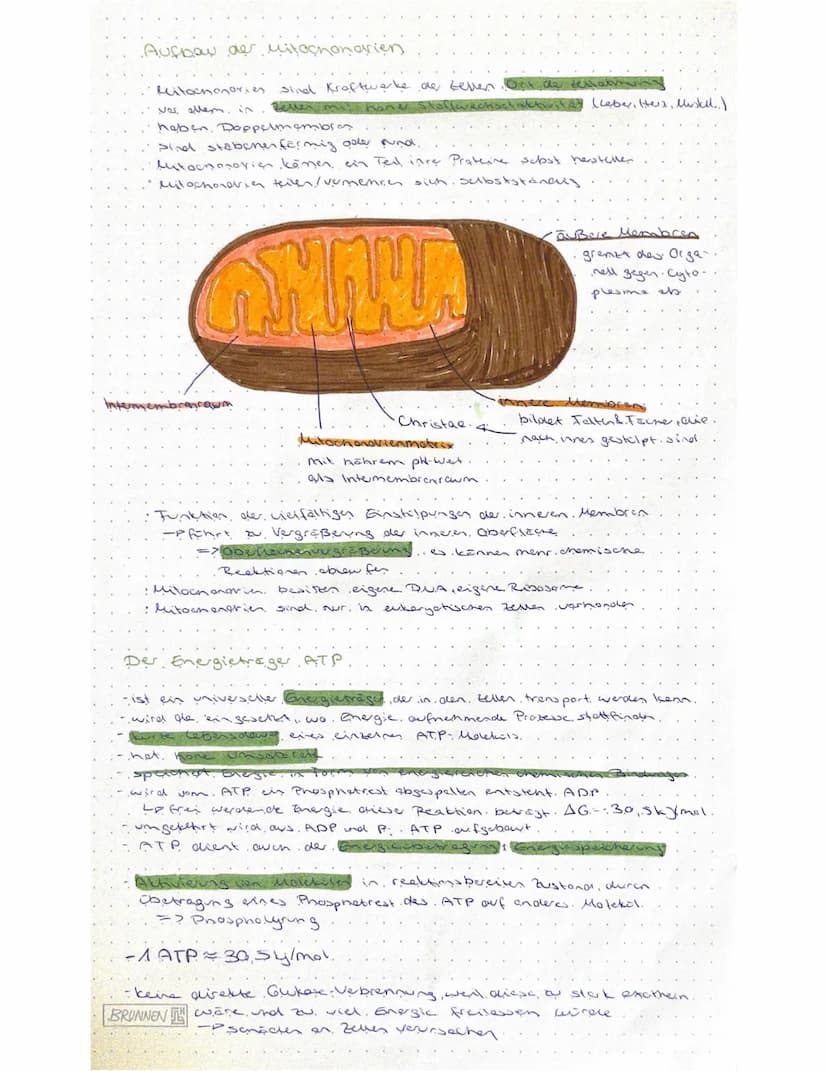 Aufbau der Mitochondrien
· Mitochondrien sind Kraftwerke der Zellen. Ort der Zellatmung
· vor allem in Zellen mit hoher Stoffwechselaktivität (Leber, Herz, Muskel)
· haben Doppelmembran
· sind stäbchenförmig oder rund
· Mitochondrien können ein Teil ihre Proteine selbst herstellen
· Mitochondrien teilen/vermehren sich selbstständig
äußere Membran
grenzt das Orga-
nell gegen Cyto-
plasma ab
Intermembranraum
innere Membran
bildet Falten & Fächer, die
nach innen gestülpt sind
Christae
Mitochondrienmatrix
mit höherem pH-Wert
als Intermembranraum
· Funktion der vielfältigen Einstülpungen der inneren Membran
→ führt zu Vergrößerung der inneren Oberfläche
=> Oberflächenvergrößerung es können mehr chemische
Reaktionen ablaufen
· Mitochondrien besitzen eigene DNA, eigene Ribosome
· Mitochondrien sind nur in eukaryotischen Zellen vorhanden
Der Energieträger ATP
- ist ein universeller Energieträger, der in den Zellen transport werden kann
- wird da eingesetzt, wo Energie aufnehmende Prozesse stattfinden
- kurze Lebensdauer eines einzelnen ATP-Moleküls
- hat hohe Umsatzrate
- speichert Energie in Form von energiereichen chemischen Bindungen
- wird vom ATP ein Phosphatrest abgespalten entsteht ADP
↳ frei werdende Energie dieser Reaktion beträgt ΔG = -30,5 kJ/mol
- umgekehrt wird aus ADP und Pi ATP aufgebaut
- ATP dient auch der Energieübertragung & Energiespeicherung
- Aktivierung von Molekülen in reaktionsbereiten Zustand durch
Übertragung eines Phosphatrest des ATP auf anderes Molekül
=> Phospholyrung
- 1 ATP ≈ 30,5 kJ/mol
- keine direkte Glukose-Verbrennung, weil diese zu stark exotherm
wäre und zu viel Energie freilassen würde
→ Schäden an Zellen verursachen
BRUNNEN